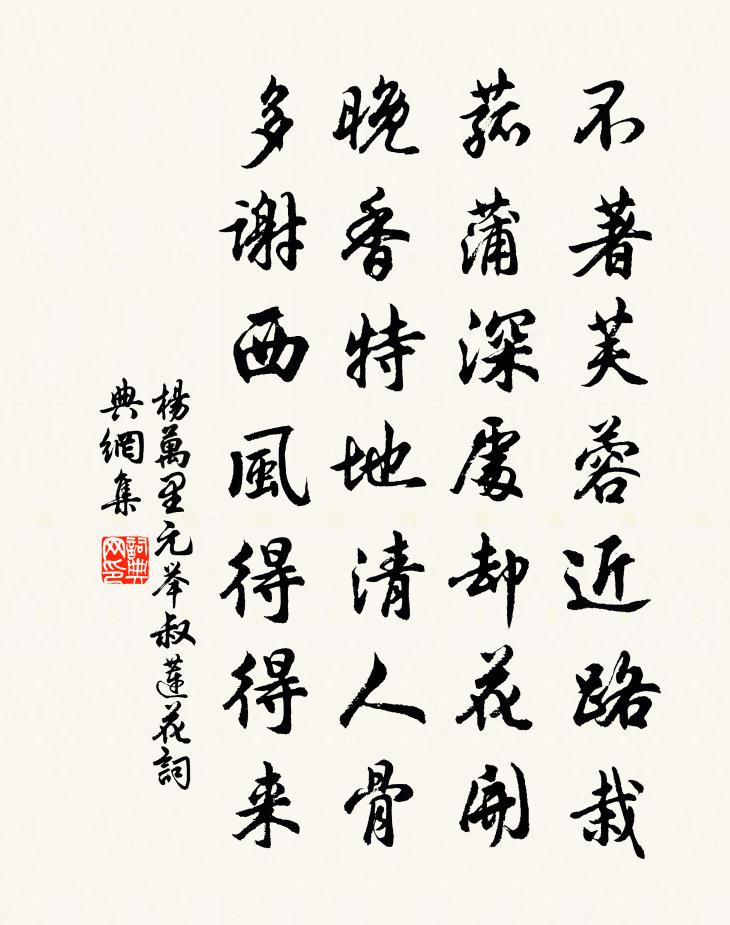 不著芙蓉近路栽
菰蒲深處却花開
晚香特地清人骨
多謝西風得得来
楊萬里元举叔蓮花詞
典網集
詞典网印